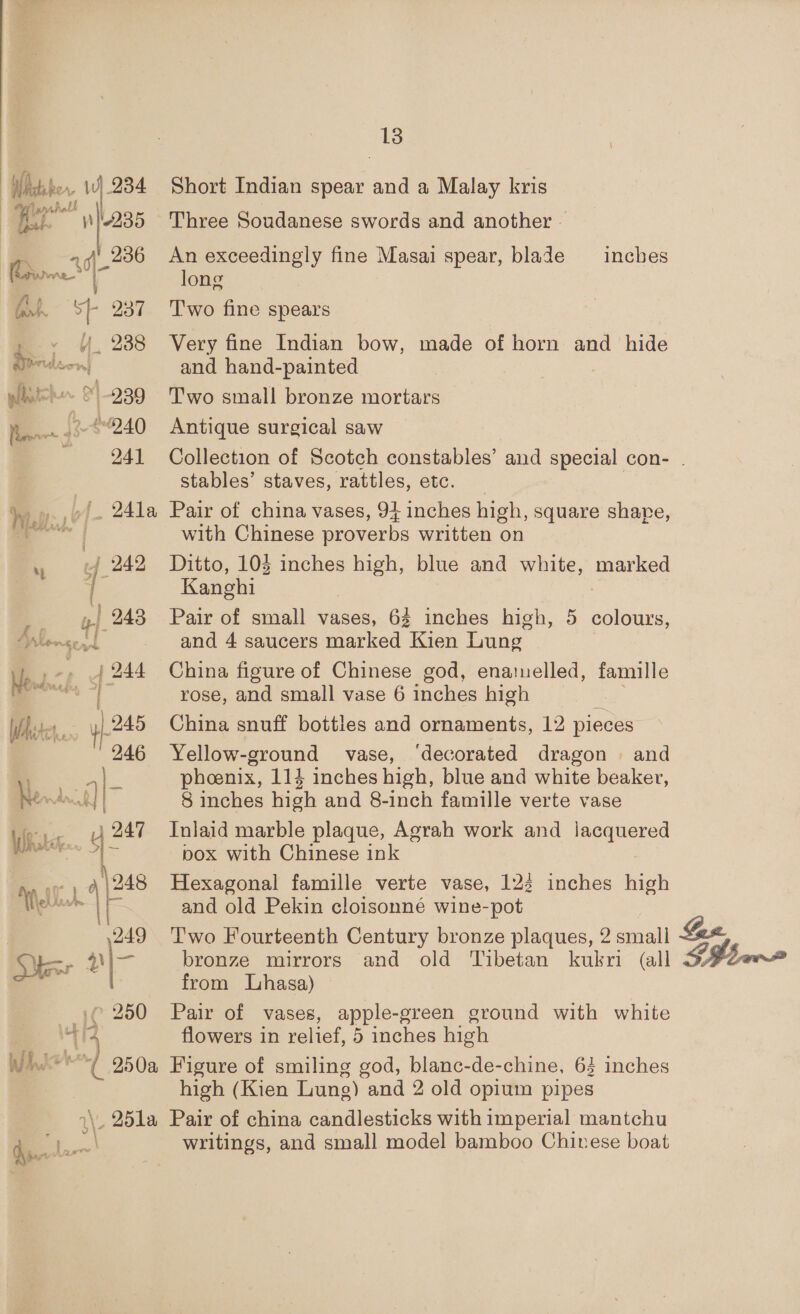 13
234 Short Indian spear and a Malay kris
235 Three Soudanese swords and another
236 An exceedingly fine Masai spear, blade inches
long
237 Two fine spears
238 Very fine Indian bow, made of horn and hide
and hand-painted
239 Two small bronze mortars
240 Antique surgical saw
241 Collection of Scotch constables' and special con-
stables' staves, rattles, etc.
241a Pair of china vases, 9¼ inches high, square shape,
with Chinese proverbs written on
242 Ditto, 10½ inches high, blue and white, marked
Kanghi
243 Pair of small vases, 6¾ inches high, 5 colours,
and 4 saucers marked Kien Lung
244 China figure of Chinese god, enamelled, famille
rose, and small vase 6 inches high
245 China snuff bottles and ornaments, 12 pieces
246 Yellow-ground vase, decorated dragon and
phœnix, 11½ inches high, blue and white beaker,
8 inches high and 8-inch famille verte vase
247 Inlaid marble plaque, Agrah work and lacquered
box with Chinese ink
248 Hexagonal famille verte vase, 12¾ inches high
and old Pekin cloisonné wine-pot
249 Two Fourteenth Century bronze plaques, 2 small
bronze mirrors and old Tibetan kukri (all
from Lhasa)
250 Pair of vases, apple-green ground with white
flowers in relief, 5 inches high
250a Figure of smiling god, blanc-de-chine, 6¾ inches
high (Kien Lung) and 2 old opium pipes
251a Pair of china candlesticks with imperial mantchu
writings, and small model bamboo Chinese boat